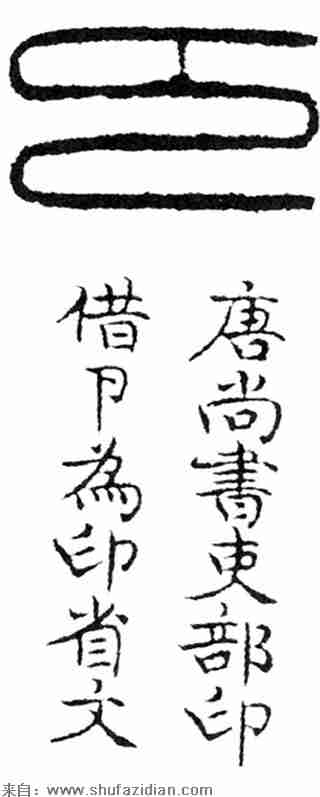 唐尚書吏部印
借卪為印省文
来自：www.shufazidian.com